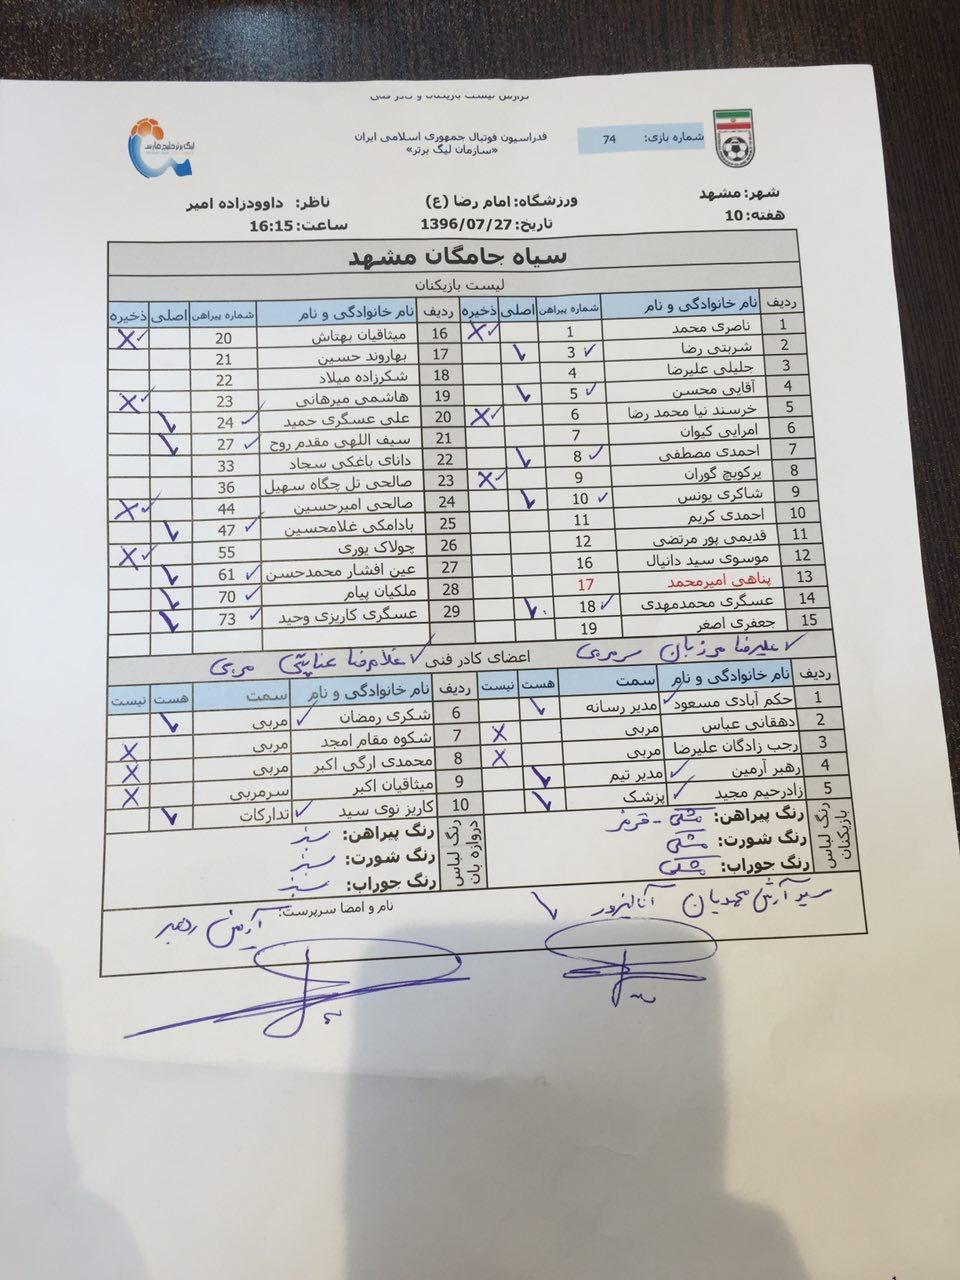 گزارش لیست بازیکنان و کادر فنی
فدراسیون فوتبال جمهوری اسلامی ایران
«سازمان لیگ برتر»
شماره بازی: 74
لیگ برتر خلیج فارس
شهر: مشهد ورزشگاه: امام رضا (ع) ناظر: داوودزاده امیر
هفته: 10 تاریخ: 1396/07/27 ساعت: 16:15
سیاه جامگان مشهد
لیست بازیکنان
ردیف نام خانوادگی و نام شماره پیراهن اصلی ذخیره ردیف نام خانوادگی و نام شماره پیراهن اصلی ذخیره
1 ناصری محمد 1 ✓X 16 میثاقیان بهتاش 20 ✓X
2 شربتی رضا 3 ✓ ✓ 17 بهاروند حسین 21
3 جلیلی علیرضا 4 18 شکرزاده میلاد 22
4 آقایی محسن 5 ✓ ✓ 19 هاشمی میرهانی 23 ✓X
5 خرسند نیا محمد رضا 6 ✓X 20 علی عسگری حمید 24 ✓ ✓
6 امرایی کیوان 7 21 سیف اللهی مقدم روح 27 ✓ ✓
7 احمدی مصطفی 8 ✓ ✓ 22 دانای باغکی سجاد 33
8 یرکویچ گوران 9 ✓X 23 صالحی تل چگاه سهیل 36
9 شاکری یونس 10 ✓ ✓ 24 صالحی امیرحسین 44 ✓X
10 احمدی کریم 11 25 بادامکی غلامحسین 47 ✓ ✓
11 قدیمی پور مرتضی 12 26 چولاک یوری 55 ✓X
12 موسوی سید دانیال 16 27 عین افشار محمدحسن 61 ✓ ✓
13 پناهی امیرمحمد 17 28 ملکیان پیام 70 ✓ ✓
14 عسگری محمدمهدی 18 ✓ ✓ 29 عسگری کاریزی وحید 73 ✓ ✓
15 جعفری اصغر 19
✓ علیرضا مرزبان سرمربی اعضای کادر فنی ✓ غلامرضا عنایتی مربی
ردیف نام خانوادگی و نام سمت هست نیست ردیف نام خانوادگی و نام سمت هست نیست
1 حکم آبادی مسعود ✓ مدیر رسانه ✓ 6 شکری رمضان ✓ مربی ✓
2 دهقانی عباس مربی X 7 شکوه مقام امجد مربی X
3 رجب زادگان علیرضا مربی X 8 محمدی ارگی اکبر مربی X
4 رهبر آرمین ✓ مدیر تیم ✓ 9 میثاقیان اکبر سرمربی X
5 زادرحیم مجید ✓ پزشک ✓ 10 کاریز نوی سید ✓ تدارکات ✓
رنگ لباس بازیکنان رنگ پیراهن: مشکی - قرمز رنگ لباس دروازه بان رنگ پیراهن: سبز
رنگ شورت: مشکی رنگ شورت: سبز
رنگ جوراب: مشکی رنگ جوراب: سبز
سید آرش محمدیان آنالیزور ✓ نام و امضا سرپرست: آرمین رهبر